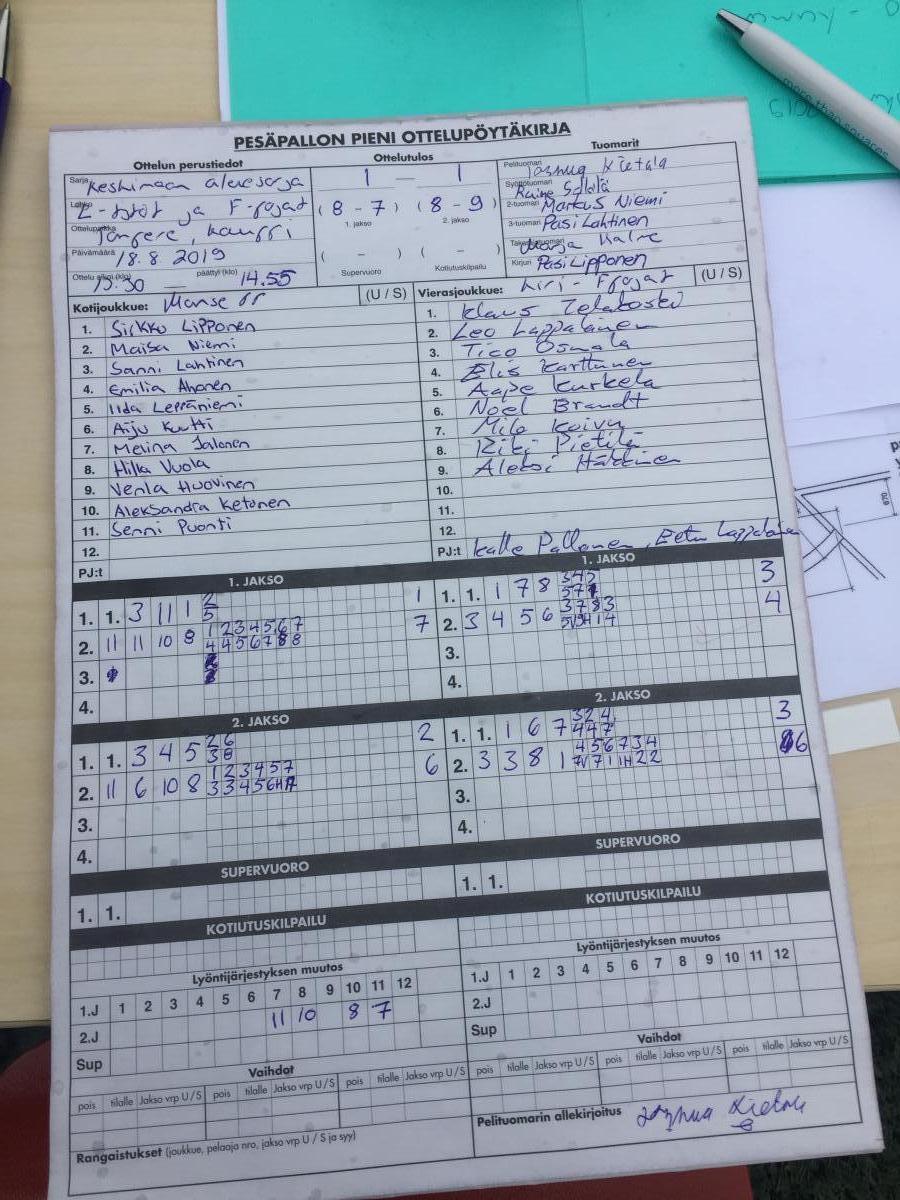 PESÄPALLON PIENI OTTELUPÖYTÄKIRJA
Ottelun perustiedot
Ottelutulos
Tuomarit
Sarja
Lohko E-tytöt ja F-pojat
Ottelupaikka Tampere, kauppi
Päivämäärä 18.8 2019
Ottelu alkoi (klo) 13.30 — päättyi (klo) 14.55
1 — 1
(8 - 7) (8 - 9)
1. jakso 2. jakso
( - ) ( - )
Supervuoro Kotiutuskilpailu
Pelituomari Joshua Kietala
Syöttötuomari
2-tuomari Markus Niemi
3-tuomari Pasi Lahtinen
Takarajatuomari
Kirjuri Pasi Lipponen
Kotijoukkue: Manse (U / S)
1. Sirkku Lipponen
2. Maisa Niemi
3. Sanni Lahtinen
4. Emilia Ahonen
5. Iida Leppäniemi
6. Aiju Kutti
7. Melina Jalonen
8. Hilka Vuola
9. Venla Huovinen
10. Aleksandra Ketonen
11. Senni Puonti
12.
PJ:t
Vierasjoukkue: Kiri - F-pojat (U / S)
1. Klaus
2. Leo Lappalainen
3. Tico Osmala
4. Elis Karttunen
5. Aape Kurkela
6. Noel Brandt
7. Milo Koivu
8. Riki Pietilä
9. Aleksi
10.
11.
12.
PJ:t Kalle Pallonen, Eetu Lappalainen
1. JAKSO
1. 1. 3 11 1 2 5 1
2. 11 11 10 8 1 2 3 4 5 6 7 7
3.
4.
1. JAKSO
1. 1. 1 7 8 3
2. 3 4 5 6 4
3.
4.
2. JAKSO
1. 1. 3 4 5 2 6 3 8 2
2. 11 6 10 8 1 2 3 4 5 7 6
3.
4.
2. JAKSO
1. 1. 1 6 7 3 2 4 4 4 7 3
2. 3 3 8 1 4 5 6 7 3 4 6
3.
4.
SUPERVUORO
1. 1.
SUPERVUORO
1. 1.
KOTIUTUSKILPAILU
KOTIUTUSKILPAILU
Lyöntijärjestyksen muutos
1.J 1 2 3 4 5 6 7 8 9 10 11 12
2.J 11 10 8 7
Sup
Lyöntijärjestyksen muutos
1.J 1 2 3 4 5 6 7 8 9 10 11 12
2.J
Sup
Vaihdot
pois tilalle Jakso vrp U / S pois tilalle Jakso vrp U / S pois tilalle Jakso vrp U / S
Vaihdot
pois tilalle Jakso vrp U / S pois tilalle Jakso vrp U / S pois tilalle Jakso vrp U / S
Rangaistukset (joukkue, pelaaja nro, jakso vrp U / S ja syy)
Pelituomarin allekirjoitus Joshua Kietala